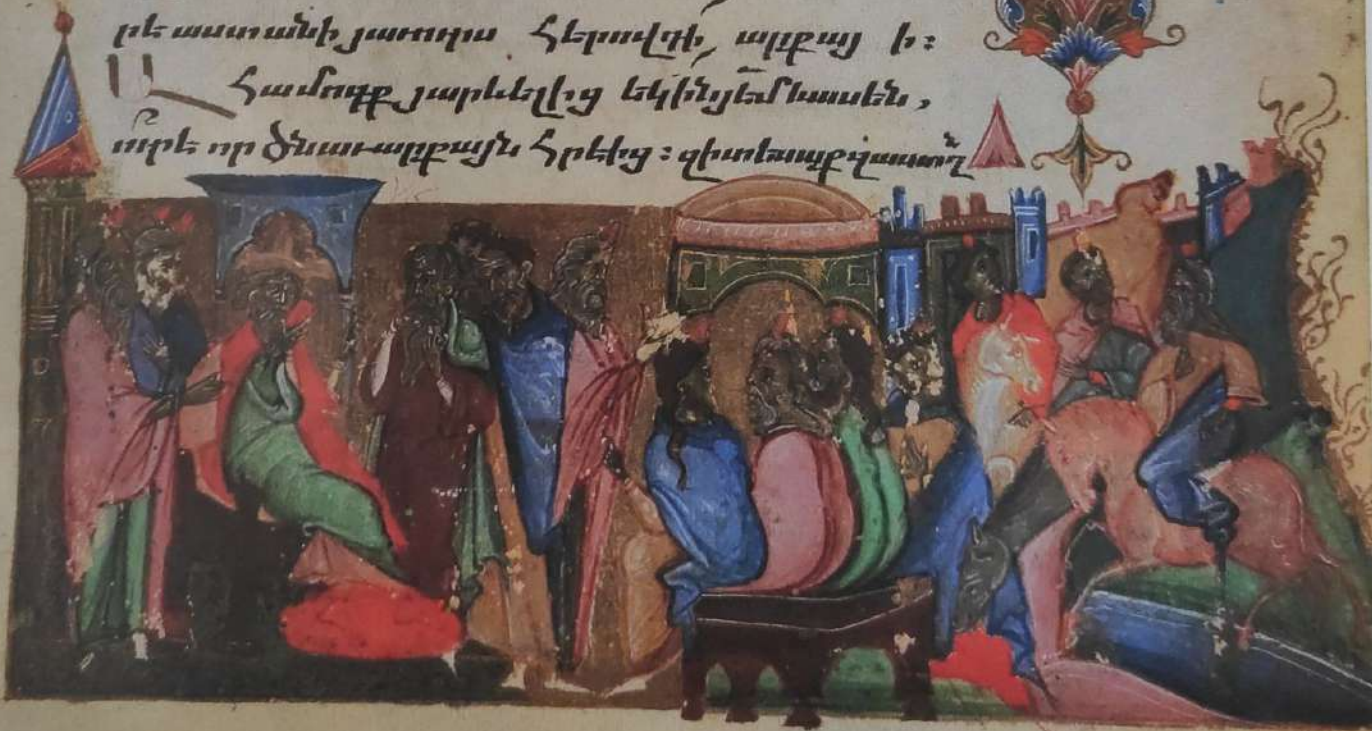 րէաստանի յաւուրս Հերովդի, արքայի։
Ահա մոգք յարևելից եկին յԵմ և ասեն,
ուր է որ ծնաւ արքայն Հրէից։ զի տեսաք զաստղ